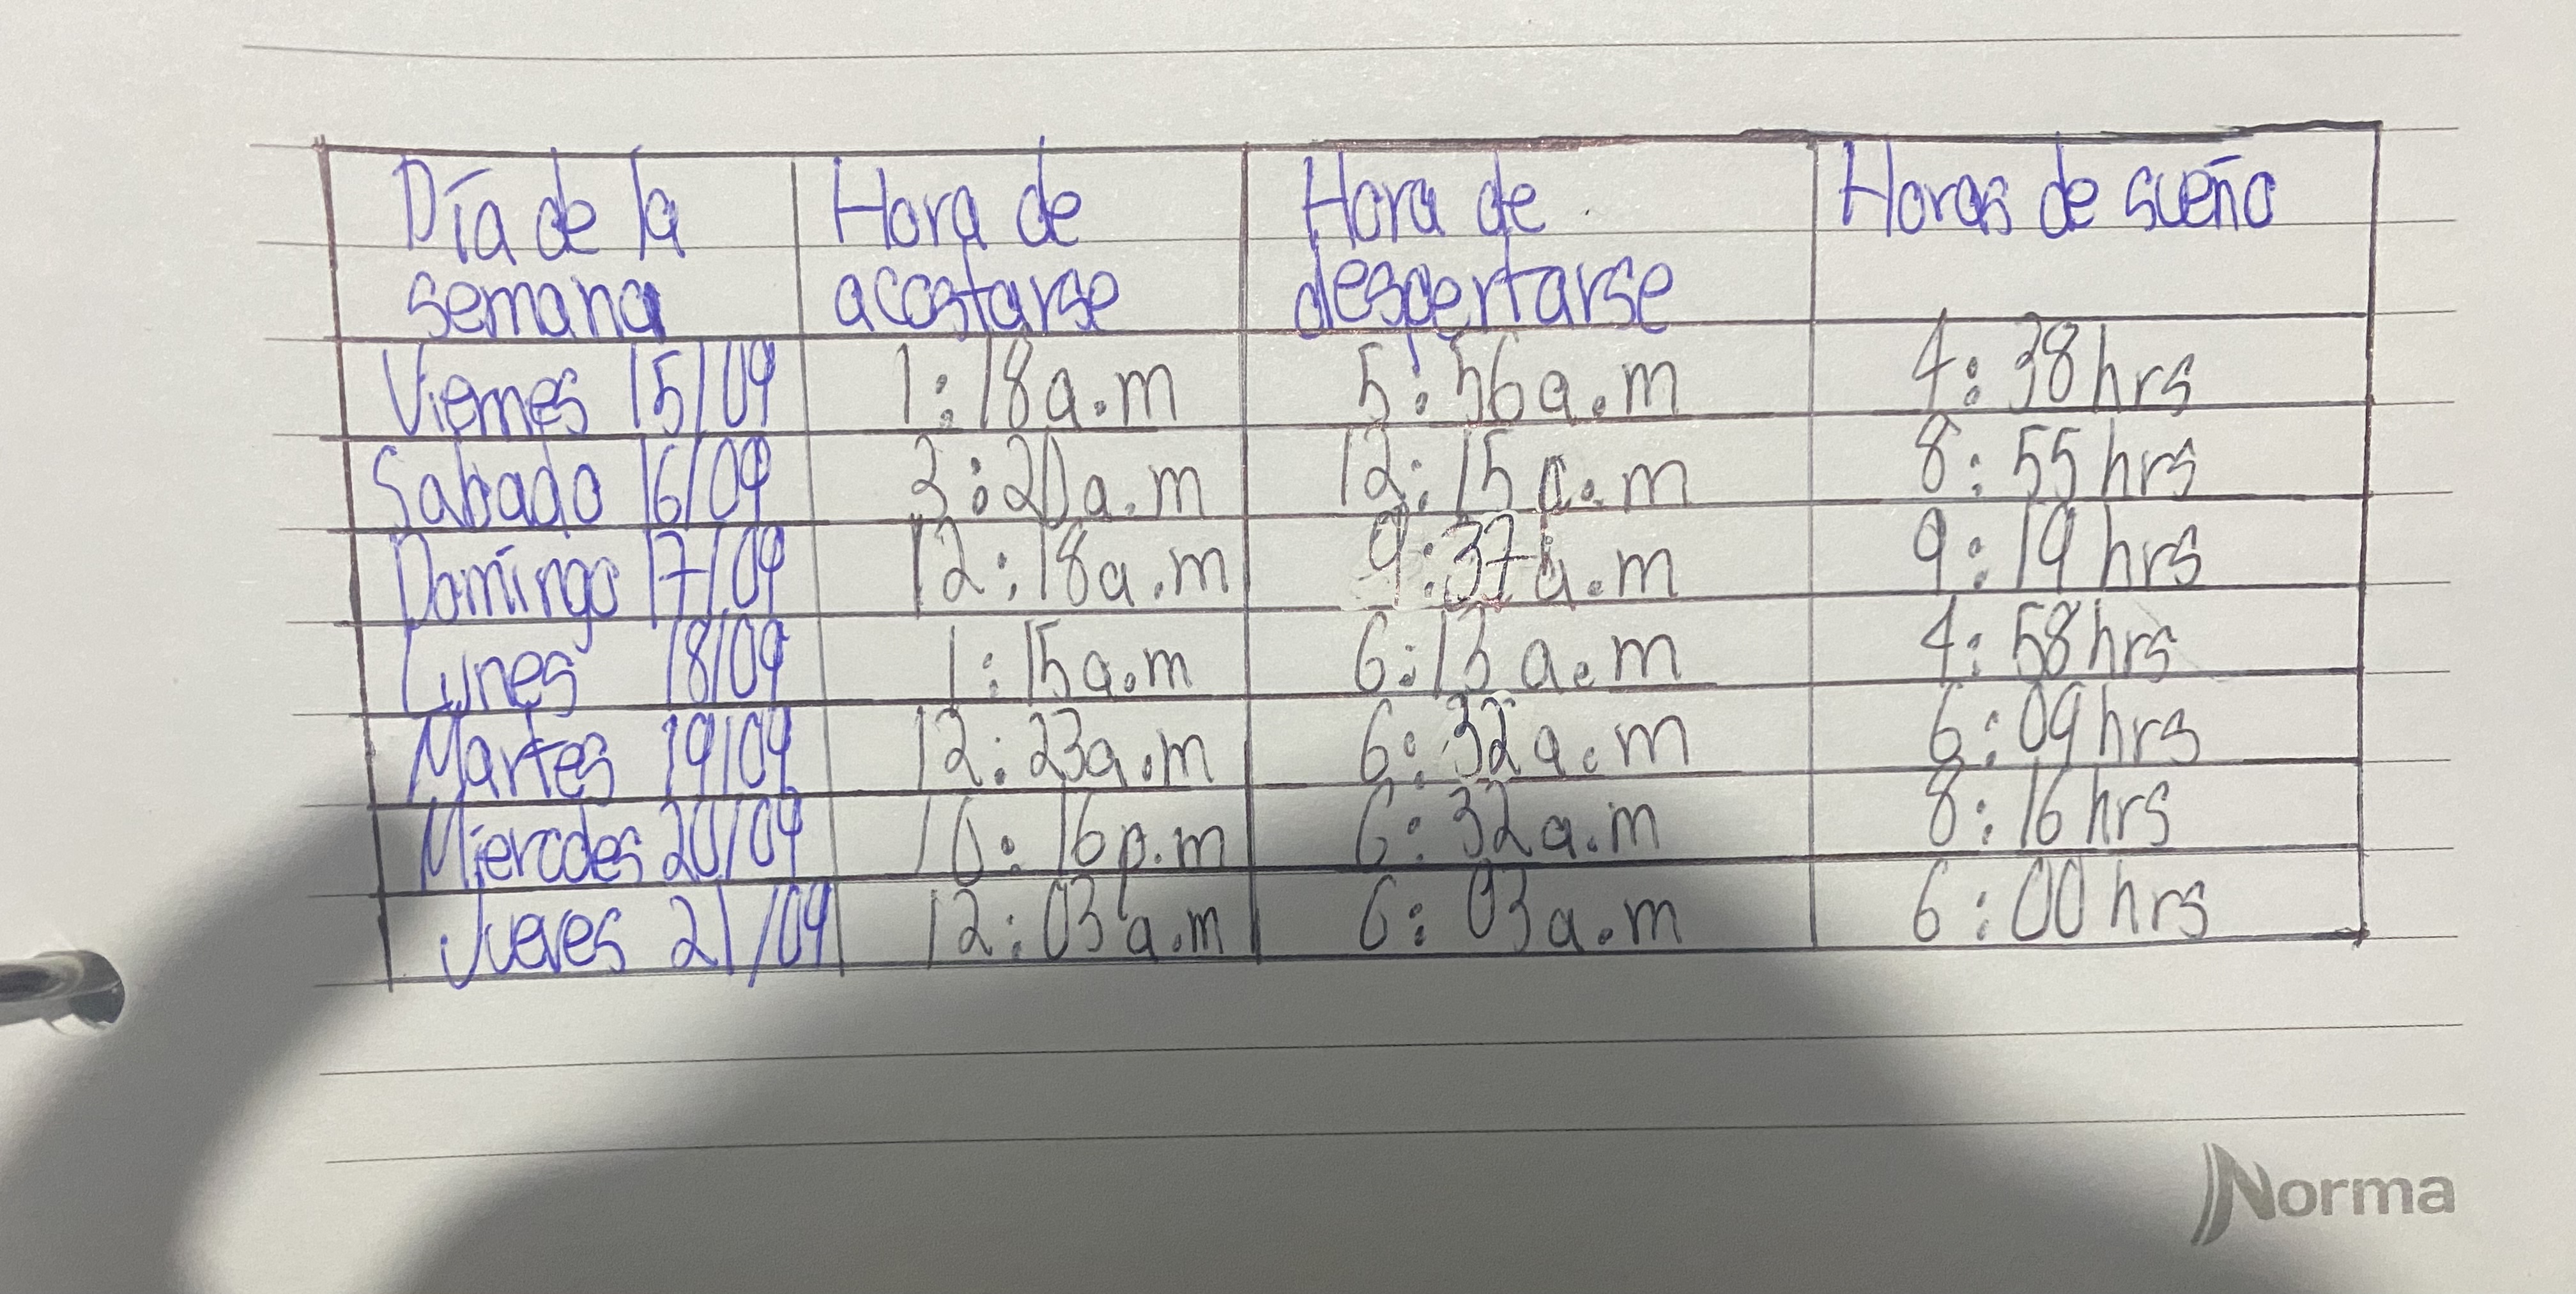 Día de la semana Hora de acostarse Hora de despertarse Horas de sueño
Viernes 15/09 1:18a.m 5:56a.m 4:38hrs
Sabado 16/09 3:20a.m 12:15a.m 8:55hrs
Domíngo 17/09 12:18a.m 9:37a.m 9:19 hrs
Lunes 18/09 1:15a.m 6:13a.m 4:58hrs
Martes 19/09 12:23a.m 6:32a.m 6:09hrs
Miercoles 20/09 10:16p.m 6:32a.m 8:16hrs
Jueves 21/09 12:03a.m 6:03a.m 6:00hrs
Norma